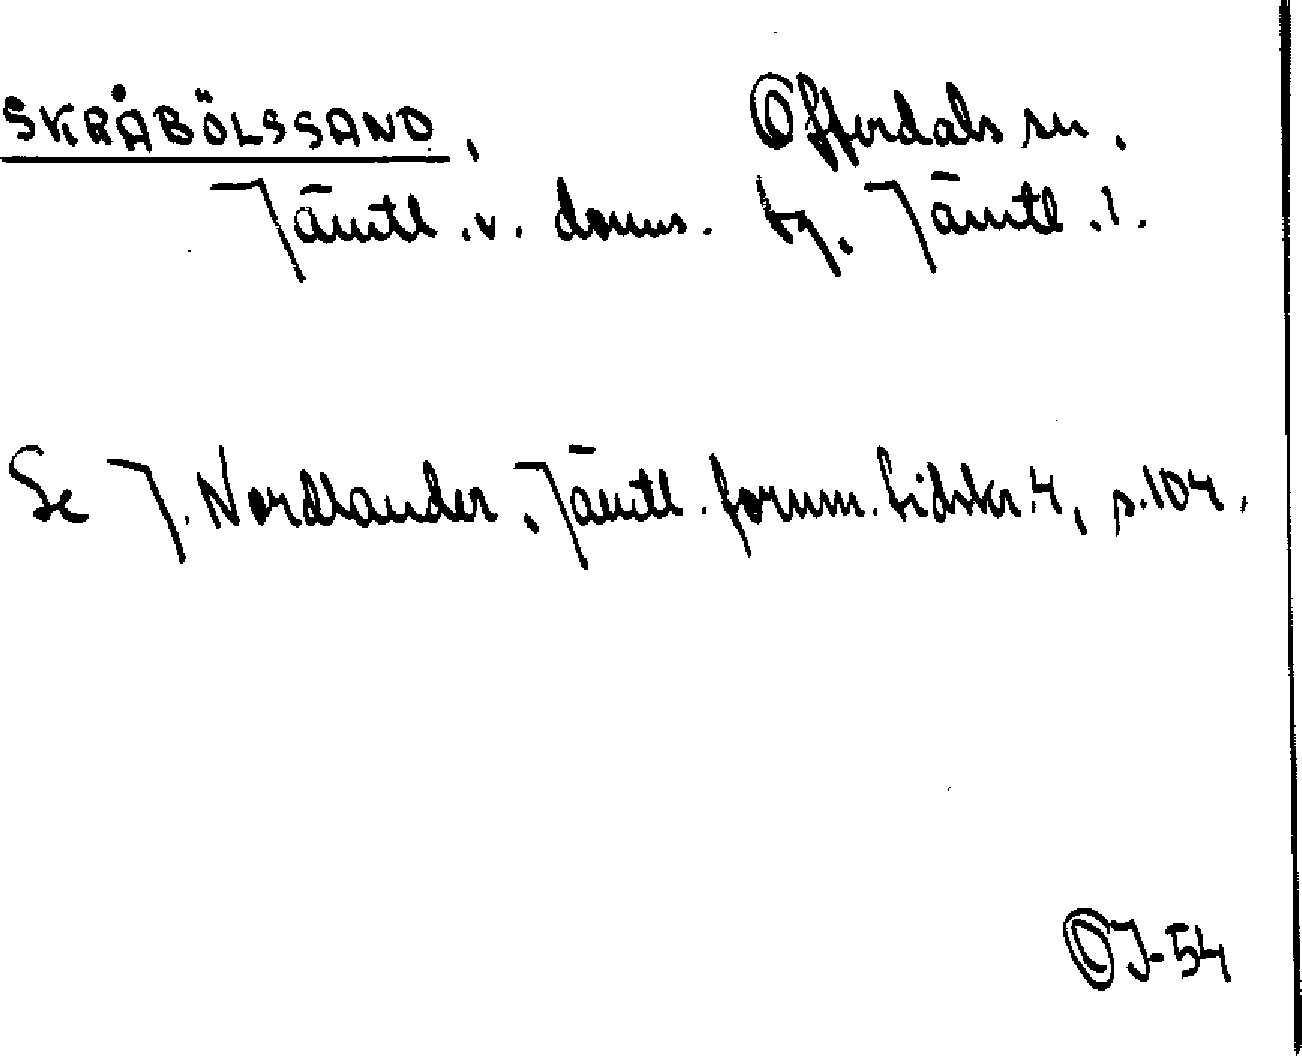 SKRÅBÖLSSAND, Offerdals sn,
Jämtl. v. doms. tg. Jämtl. l.
Se J. Nordlander, Jämtl. fornm. tidskr. 4, s. 104.
OJ-54